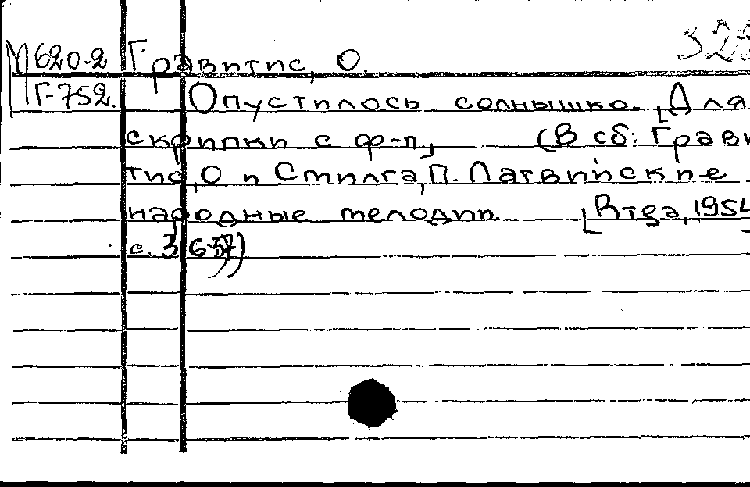 М620-2 Гравитис, О.
Г-752. Опустилось солнышко. [Для
скрипки с ф-п] (В сб: Грави
тис, О и Стилга, П. Латвийские
народные мелодии. [Rīga, 1954
с. 36-37)